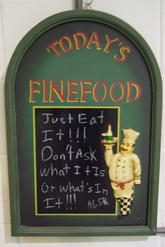 TODAY'S
FINEFOOD
Just Eat
It!!!
Don't Ask
what It Is
Or what's In
It!!!